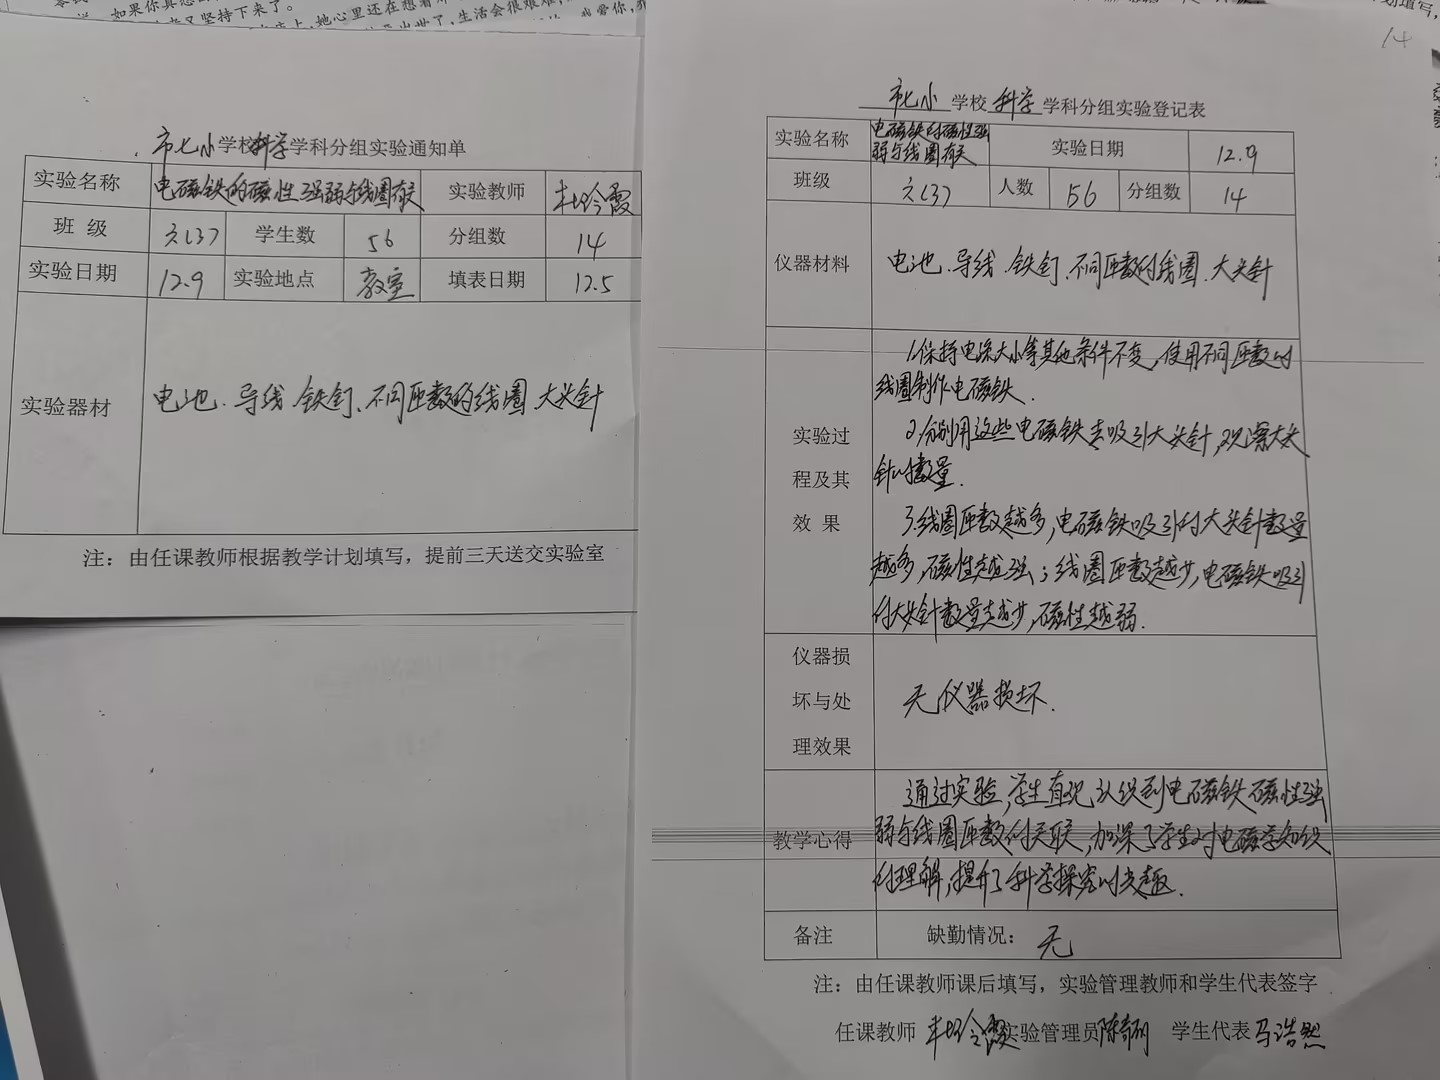 如果你真
又坚持下来了。
她心里还在想着
生活会很艰难
市七小学校科学学科分组实验通知单
实验名称 电磁铁的磁性强弱与线圈有关 实验教师
班 级 六(3) 学生数 56 分组数 14
实验日期 12.9 实验地点 教室 填表日期 12.5
实验器材 电池.导线.铁钉、不同匝数的线圈.大头针
注：由任课教师根据教学计划填写，提前三天送交实验室
14
市七小 学校 科学 学科分组实验登记表
实验名称 电磁铁的磁性强弱与线圈有关 实验日期 12.9
班级 六(3) 人数 56 分组数 14
仪器材料 电池.导线.铁钉.不同匝数的线圈.大头针
实验过程及其效果
1.保持电流大小等其他条件不变,使用不同匝数的
线圈制作电磁铁.
2.分别用这些电磁铁去吸引大头针,观察大头
针的数量.
3.线圈匝数越多,电磁铁吸引的大头针数量
越多,磁性越强;线圈匝数越少,电磁铁吸引
的大头针数量越少,磁性越弱.
仪器损坏与处理效果 无仪器损坏.
教学心得
通过实验,学生直观认识到电磁铁磁性强
弱与线圈匝数的关联,加深了学生对电磁学知识
的理解,提升了科学探究的兴趣.
备注 缺勤情况：无
注：由任课教师课后填写，实验管理教师和学生代表签字
任课教师 实验管理员 学生代表 马浩然